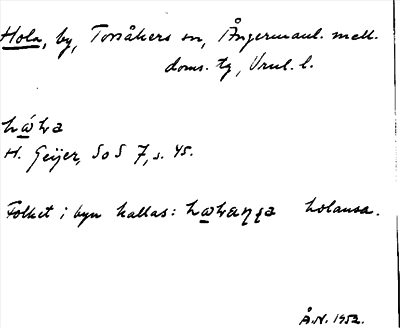 Hola, by, Torsåkers sn, Ångermanl. mell.
doms. tg, Vnul. l.
H. Geijer, SoS 7, s. 45.
Folket i byn kallas: holansa.
Å.N. 1952.